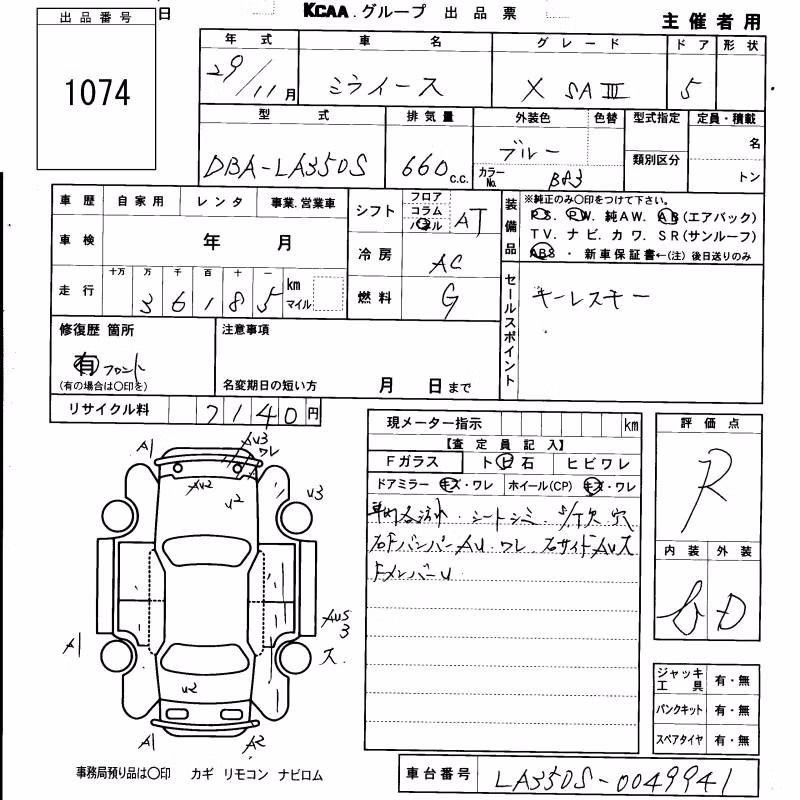 日 KCAA.グループ 出品票
主催者用
出品番号
1074
年式 車名 グレード ドア 形状
29/11月 ミライース X SAⅢ 5
型式 排気量 外装色 色替 型式指定 定員・積載
DBA-LA350S 660c.c. ブルー 類別区分 名
カラーNo. B83 トン
車歴 自家用 レンタ 事業.営業車
シフト フロア コラム パネル AT
装備品 ※純正のみ〇印をつけて下さい。
PS. PW. 純AW. AB(エアバック)
TV. ナビ. カワ. SR(サンルーフ)
ABS・新車保証書←(注)後日送りのみ
車検 年 月
冷房 AC
走行 十万 万 千 百 十 一 km マイル
3 6 1 8 5
燃料 G
セールスポイント
キーレスキー
修復歴 箇所
有 フロント
(有の場合は〇印を)
注意事項
名変期日の短い方 月 日まで
リサイクル料 7140円
現メーター指示 km
【査定員記入】
Fガラス トビ石 ヒビワレ
ドアミラー キズ・ワレ ホイール(CP) キズ・ワレ
シートシミ
右Fバンパー AU ワレ 右サイドAUス
FメンバーU
評価点
R
内装 外装
D
ジャッキ工具 有・無
パンクキット 有・無
スペアタイヤ 有・無
A1 AU3 ワレ
AU2 U2 U3
A1 AU5 3 ス
U2
A1 A2
事務局預り品は〇印 カギ リモコン ナビロム
車台番号 LA350S-0049941